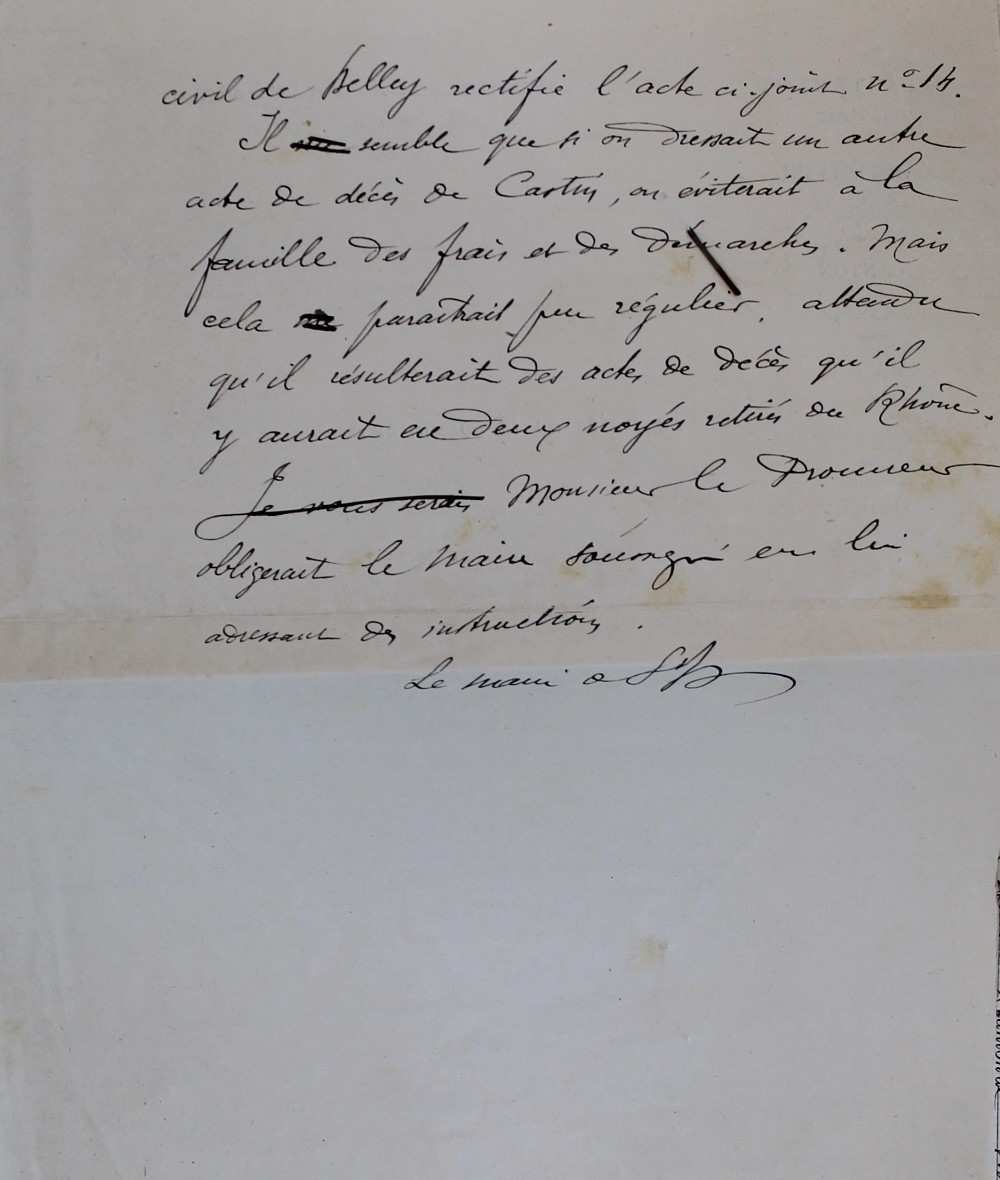 civil de Belley rectifie l'acte ci-joint n° 14.
Il me semble que si on dressait un autre
acte de décès de Castin, on éviterait à la
famille des frais et des démarches. Mais
cela me paraîtrait peu régulier, attendu
qu'il résulterait des actes de décès qu'il
y aurait eu deux noyés retirés du Rhône.
Je vous serais Monsieur le Procureur
obligerait le Maire soussigné en lui
adressant des instructions.
Le maire de